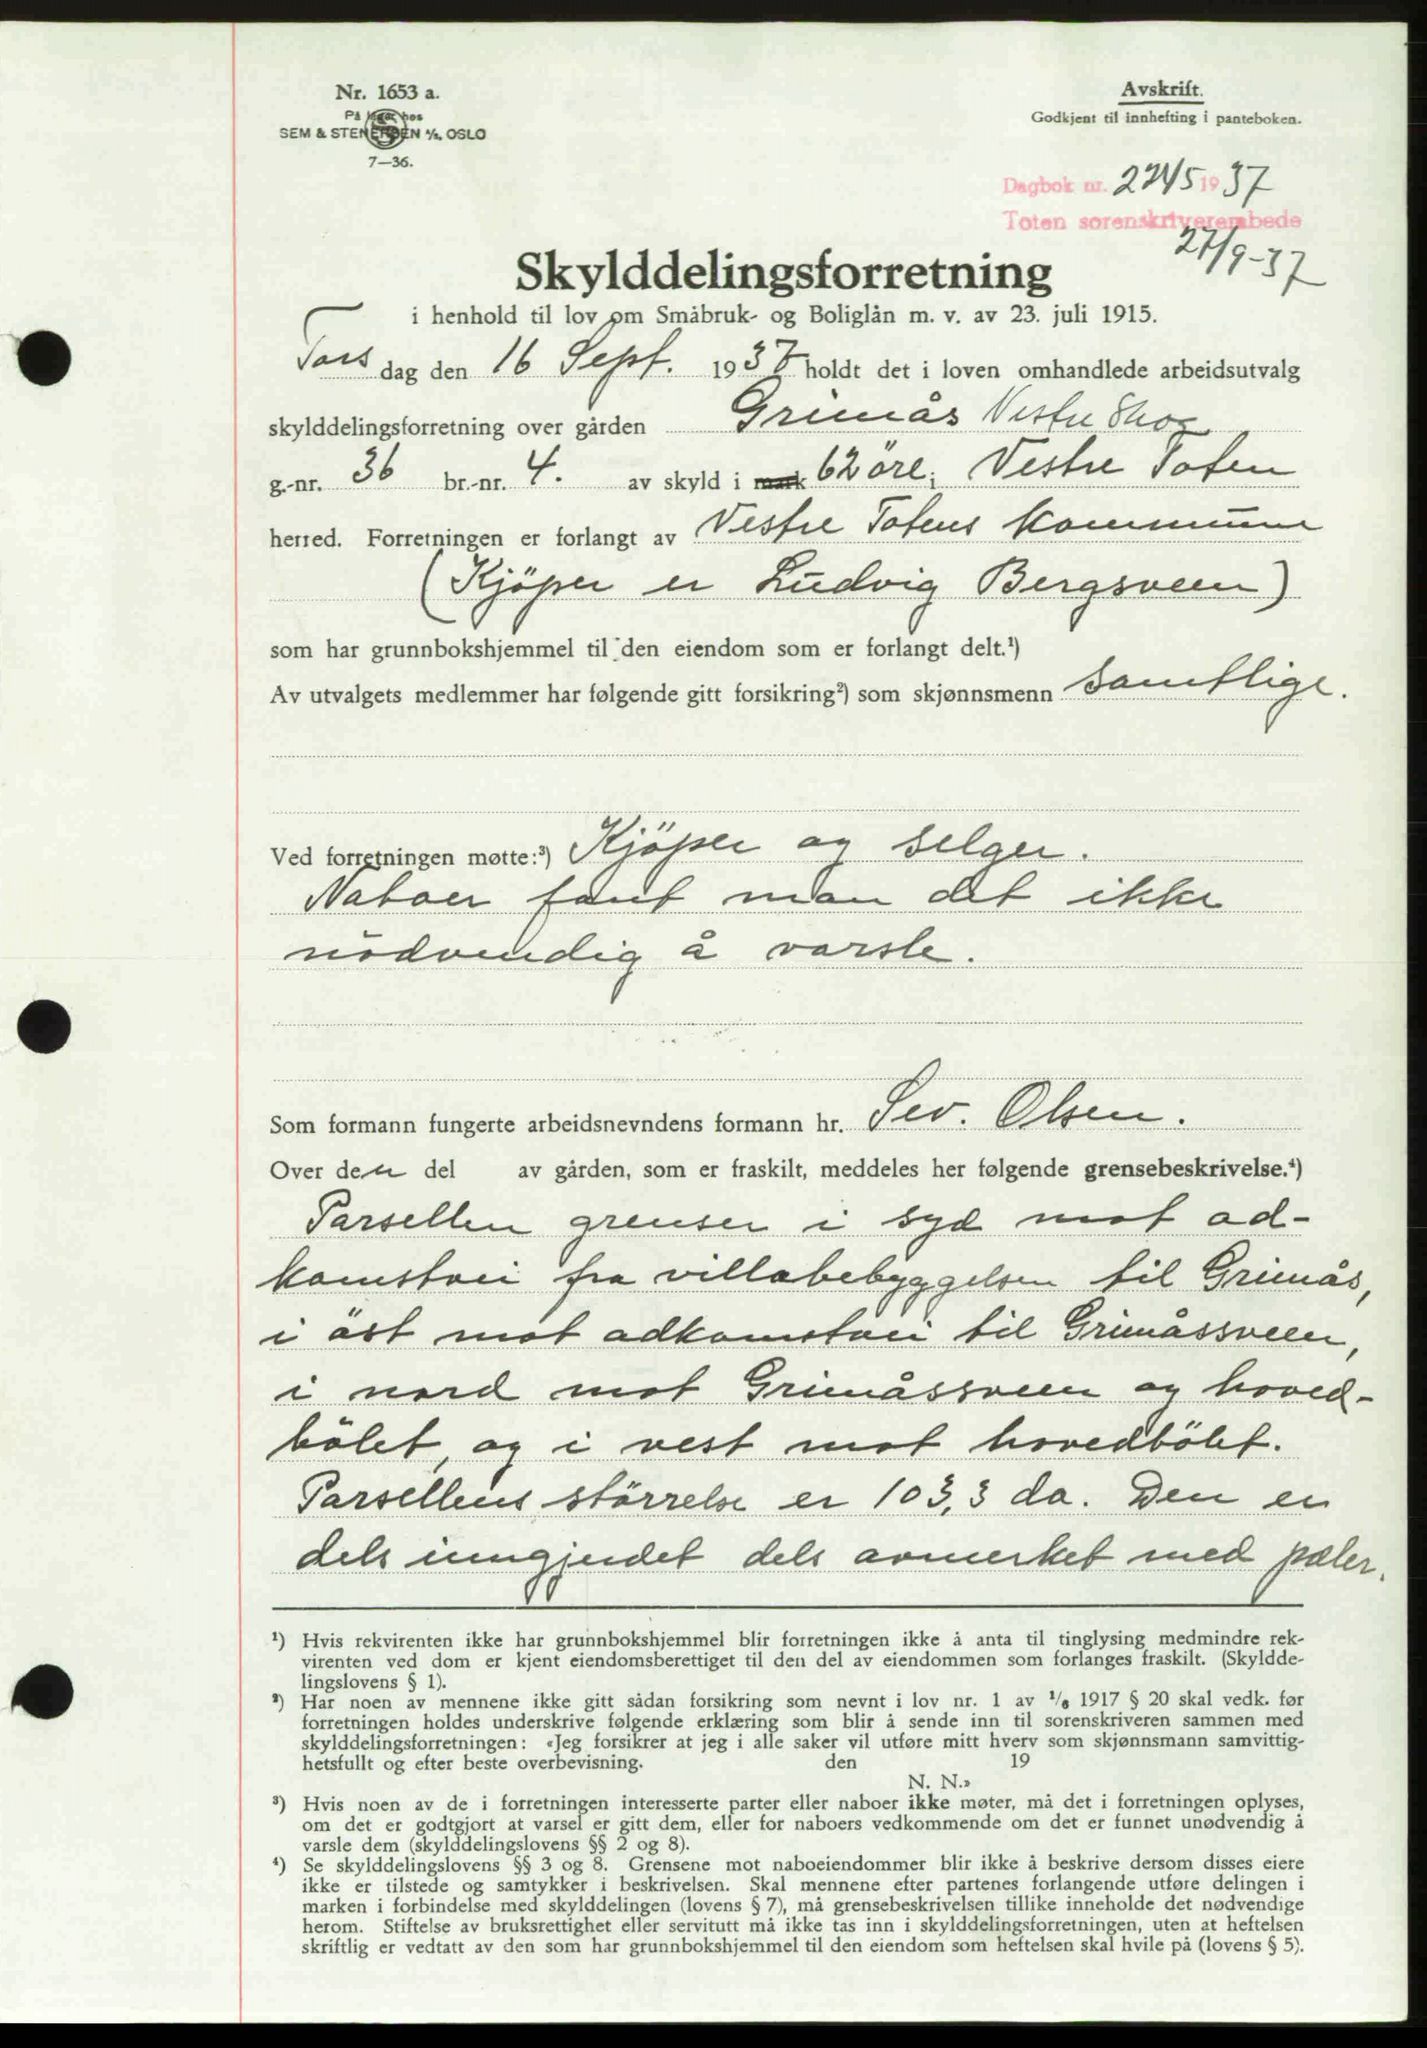 Nr. 1653 a.
På lager hos
SEM & STENERSEN A/S, OSLO
7—36.
Avskrift.
Godkjent til innhefting i panteboken.
Dagbok nr. 2245 1937
Toten sorenskriverembede
27/9-37
Skylddelingsforretning
i henhold til lov om Småbruk- og Boliglån m. v. av 23. juli 1915.
Tors dag den 16 Sept. 1937 holdt det i loven omhandlede arbeidsutvalg
skylddelingsforretning over gården Grimås Vestre Skog
g.-nr. 36 br.-nr. 4. av skyld i mark 62 öre i Vestre Toten
herred. Forretningen er forlangt av Vestre Totens kommune
(Kjöper er Ludvig Bergsveen)
som har grunnbokshjemmel til den eiendom som er forlangt delt.¹)
Av utvalgets medlemmer har følgende gitt forsikring²) som skjønnsmenn samtlige.
Ved forretningen møtte:³) Kjöper og selger.
Naboer fant man det ikke
nödvendig å varsle.
Som formann fungerte arbeidsnevndens formann hr. Sev. Olsen.
Over den del av gården, som er fraskilt, meddeles her følgende grensebeskrivelse.⁴)
Parsellen grenser i syd mot ad-
komstvei fra villabebyggelsen til Grimås,
i öst mot adkomstvei til Grimåssveen,
i nord mot Grimåssveen og hoved-
bölet, og i vest mot hovedbölet.
Parsellens störrelse er 103,3 da. Den er
dels inngjerdet dels avmerket med pæler.
¹) Hvis rekvirenten ikke har grunnbokshjemmel blir forretningen ikke å anta til tinglysing medmindre rek-
virenten ved dom er kjent eiendomsberettiget til den del av eiendommen som forlanges fraskilt. (Skyldde-
lingslovens § 1).
²) Har noen av mennene ikke gitt sådan forsikring som nevnt i lov nr. 1 av 1/6 1917 § 20 skal vedk. før
forretningen holdes underskrive følgende erklæring som blir å sende inn til sorenskriveren sammen med
skylddelingsforretningen: «Jeg forsikrer at jeg i alle saker vil utføre mitt hverv som skjønnsmann samvittig-
hetsfullt og efter beste overbevisning. den 19
N. N.»
³) Hvis noen av de i forretningen interesserte parter eller naboer ikke møter, må det i forretningen oplyses,
om det er godtgjort at varsel er gitt dem, eller for naboers vedkommende om det er funnet unødvendig å
varsle dem (skylddelingslovens §§ 2 og 8).
⁴) Se skylddelingslovens §§ 3 og 8. Grensene mot naboeiendommer blir ikke å beskrive dersom disses eiere
ikke er tilstede og samtykker i beskrivelsen. Skal mennene efter partenes forlangende utføre delingen i
marken i forbindelse med skylddelingen (lovens § 7), må grensebeskrivelsen tillike inneholde det nødvendige
herom. Stiftelse av bruksrettighet eller servitutt må ikke tas inn i skylddelingsforretningen, uten at heftelsen
skriftlig er vedtatt av den som har grunnbokshjemmel til den eiendom som heftelsen skal hvile på (lovens § 5).